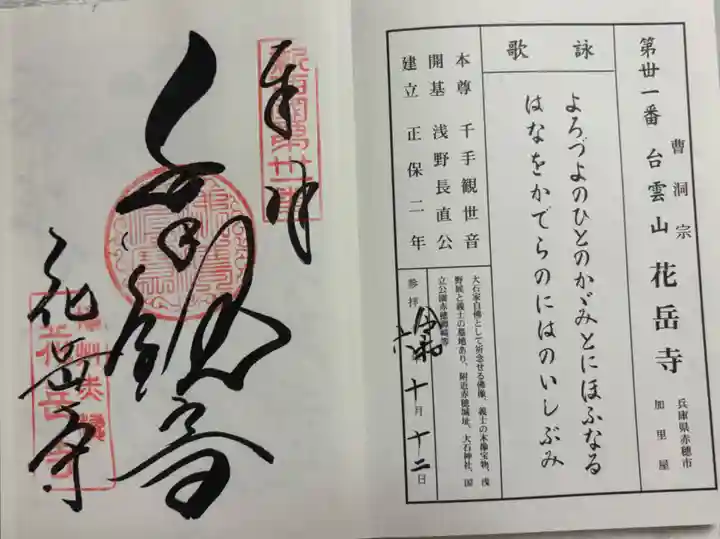 第丗一番 台雲山 花岳寺
曹洞宗
兵庫県赤穂市
加里屋
詠歌
よろづよのひとのかゞみとにほふなる
はなをかでらのにはのいしぶみ
本尊 千手観世音
開基 浅野長直公
建立 正保二年
大石家自佛として祈念せる佛像、義士の木像宝物、浅
野候と義士の墓地あり、附近赤穂城址、大石神社、国
立公園赤穂御崎等
参拝
十月十二日
奉拝
千手観音
花岳寺